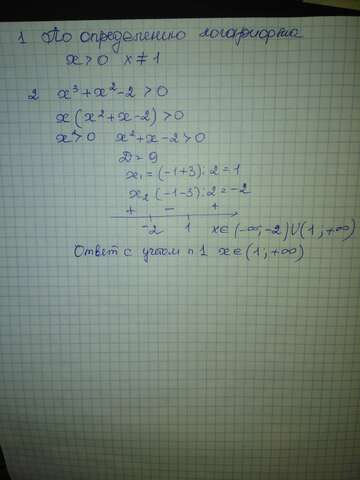 1 По определению логарифма
x > 0 x ≠ 1
2 x³ + x² - 2 > 0
x (x² + x - 2) > 0
x > 0 x² + x - 2 > 0
D = 9
x₁ = (-1+3) : 2 = 1
x₂ (-1-3) : 2 = -2
+ - +
-2 1 x ∈ (-∞; -2) ∪ (1; +∞)
Ответ с учетом п 1 x ∈ (1; +∞)